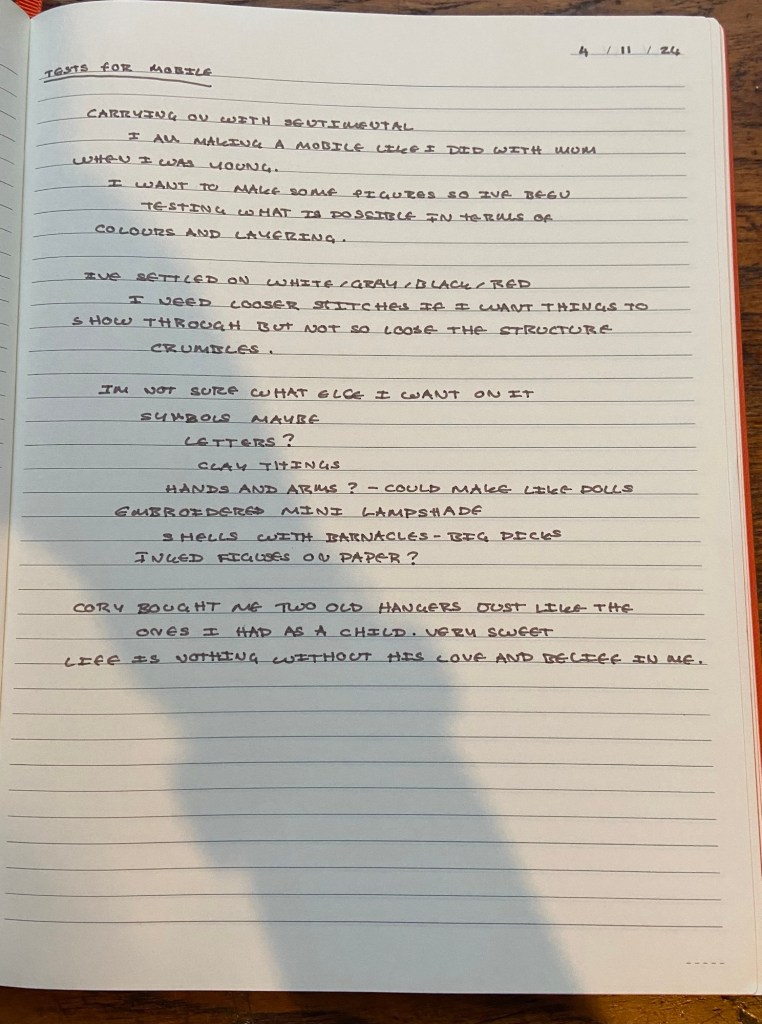 4 / 11 / 24
TESTS FOR MOBILE
CARRYING ON WITH SENTIMENTAL
I AM MAKING A MOBILE LIKE I DID WITH MUM
WHEN I WAS YOUNG.
I WANT TO MAKE SOME FIGURES SO IVE BEEN
TESTING WHAT IS POSSIBLE IN TERMS OF
COLOURS AND LAYERING.
IVE SETTLED ON WHITE/GRAY/BLACK/RED
I NEED LOOSER STITCHES IF I WANT THINGS TO
SHOW THROUGH BUT NOT SO LOOSE THE STRUCTURE
CRUMBLES.
IM NOT SURE WHAT ELSE I WANT ON IT
SYMBOLS MAYBE
LETTERS?
CLAY THINGS
HANDS AND ARMS? - COULD MAKE LIKE DOLLS
EMBROIDERED MINI LAMPSHADE
SHELLS WITH BARNACLES - BIG PICKS
INKED FIGURES ON PAPER?
CORY BOUGHT ME TWO OLD HANGERS JUST LIKE THE
ONES I HAD AS A CHILD. VERY SWEET
LIFE IS NOTHING WITHOUT HIS LOVE AND BELIEF IN ME.